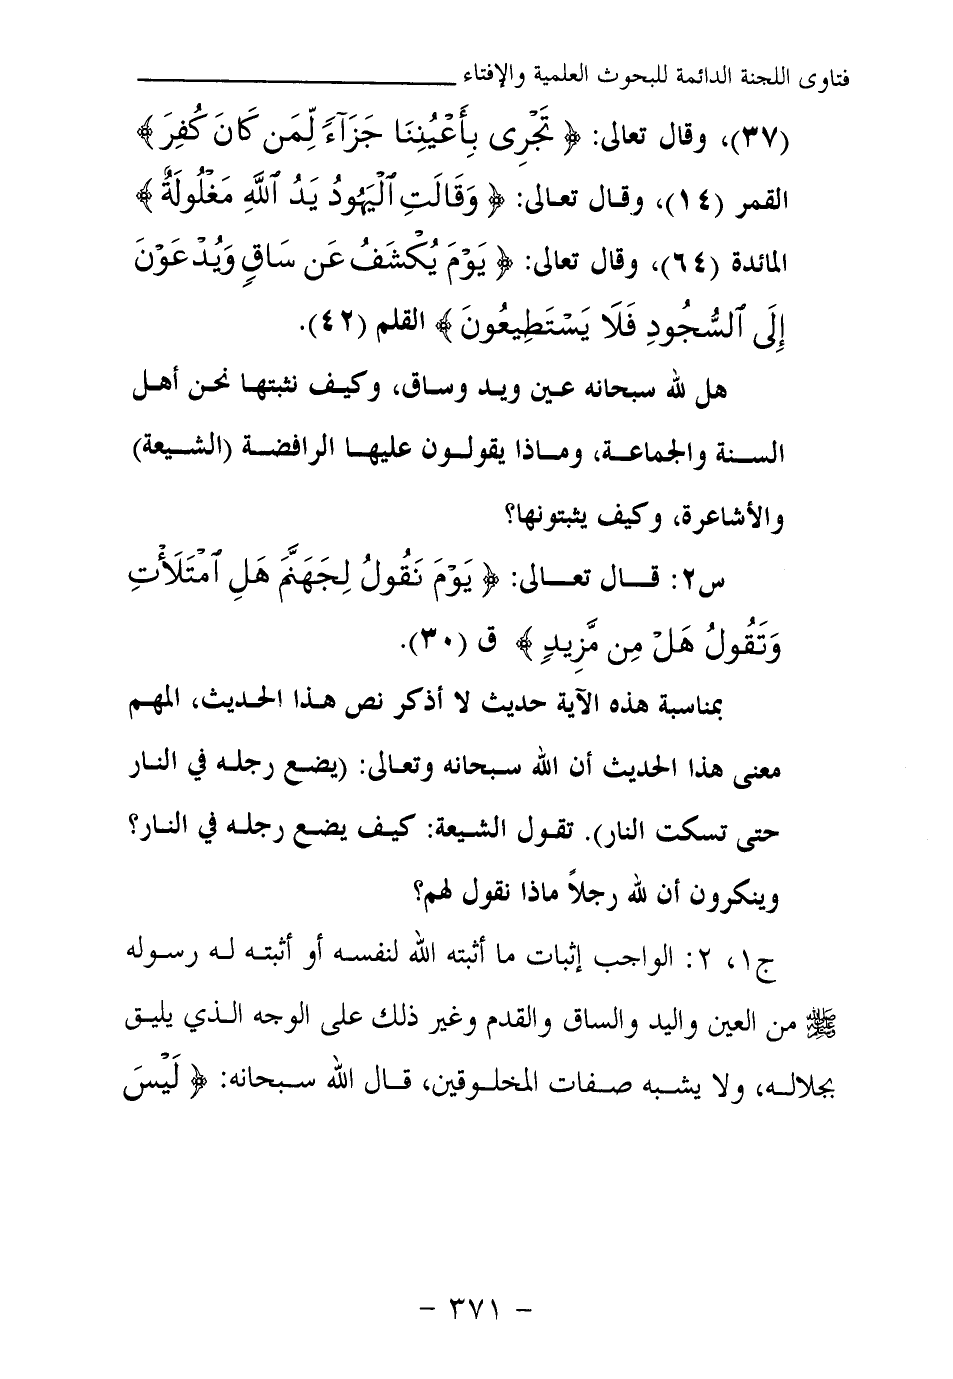 فتاوى اللجنة الدائمة للبحوث العلمية والإفتاء
(٣٧)، وقال تعالى: ﴿ تَجْرِى بِأَعْيُنِنَا جَزَآءً لِّمَن كَانَ كُفِرَ ﴾
القمر (١٤)، وقال تعالى: ﴿ وَقَالَتِ ٱلْيَهُودُ يَدُ ٱللَّهِ مَغْلُولَةٌ ﴾
المائدة (٦٤)، وقال تعالى: ﴿ يَوْمَ يُكْشَفُ عَن سَاقٍ وَيُدْعَوْنَ
إِلَى ٱلسُّجُودِ فَلَا يَسْتَطِيعُونَ ﴾ القلم (٤٢).
هل لله سبحانه عين ويد وساق، وكيف نثبتها نحن أهل
السنة والجماعة، وماذا يقولون عليها الرافضة (الشيعة)
والأشاعرة، وكيف يثبتونها؟
س٢: قال تعالى: ﴿ يَوْمَ نَقُولُ لِجَهَنَّمَ هَلِ ٱمْتَلَأْتِ
وَتَقُولُ هَلْ مِن مَّزِيدٍ ﴾ ق (٣٠).
بمناسبة هذه الآية حديث لا أذكر نص هذا الحديث، المهم
معنى هذا الحديث أن الله سبحانه وتعالى: (يضع رجله في النار
حتى تسكت النار). تقول الشيعة: كيف يضع رجله في النار؟
وينكرون أن لله رجلاً ماذا نقول لهم؟
ج١، ٢: الواجب إثبات ما أثبته الله لنفسه أو أثبته له رسوله
ﷺ من العين واليد والساق والقدم وغير ذلك على الوجه الذي يليق
بجلاله، ولا يشبه صفات المخلوقين، قال الله سبحانه: ﴿ لَيْسَ
- ٣٧١ -